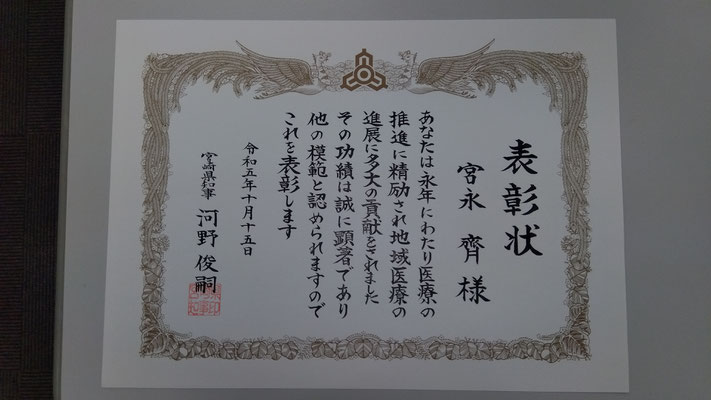 表彰状
宮永 齊 様
あなたは永年にわたり医療の
推進に精励され地域医療の
進展に多大の貢献をされました
その功績は誠に顕著であり
他の模範と認められますので
これを表彰します
令和五年十月十五日
宮崎県知事 河野俊嗣